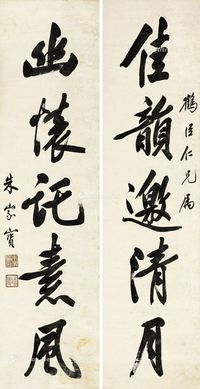 鶴臣仁兄屬
佳韻邀清月
幽懷託素風
朱家寶